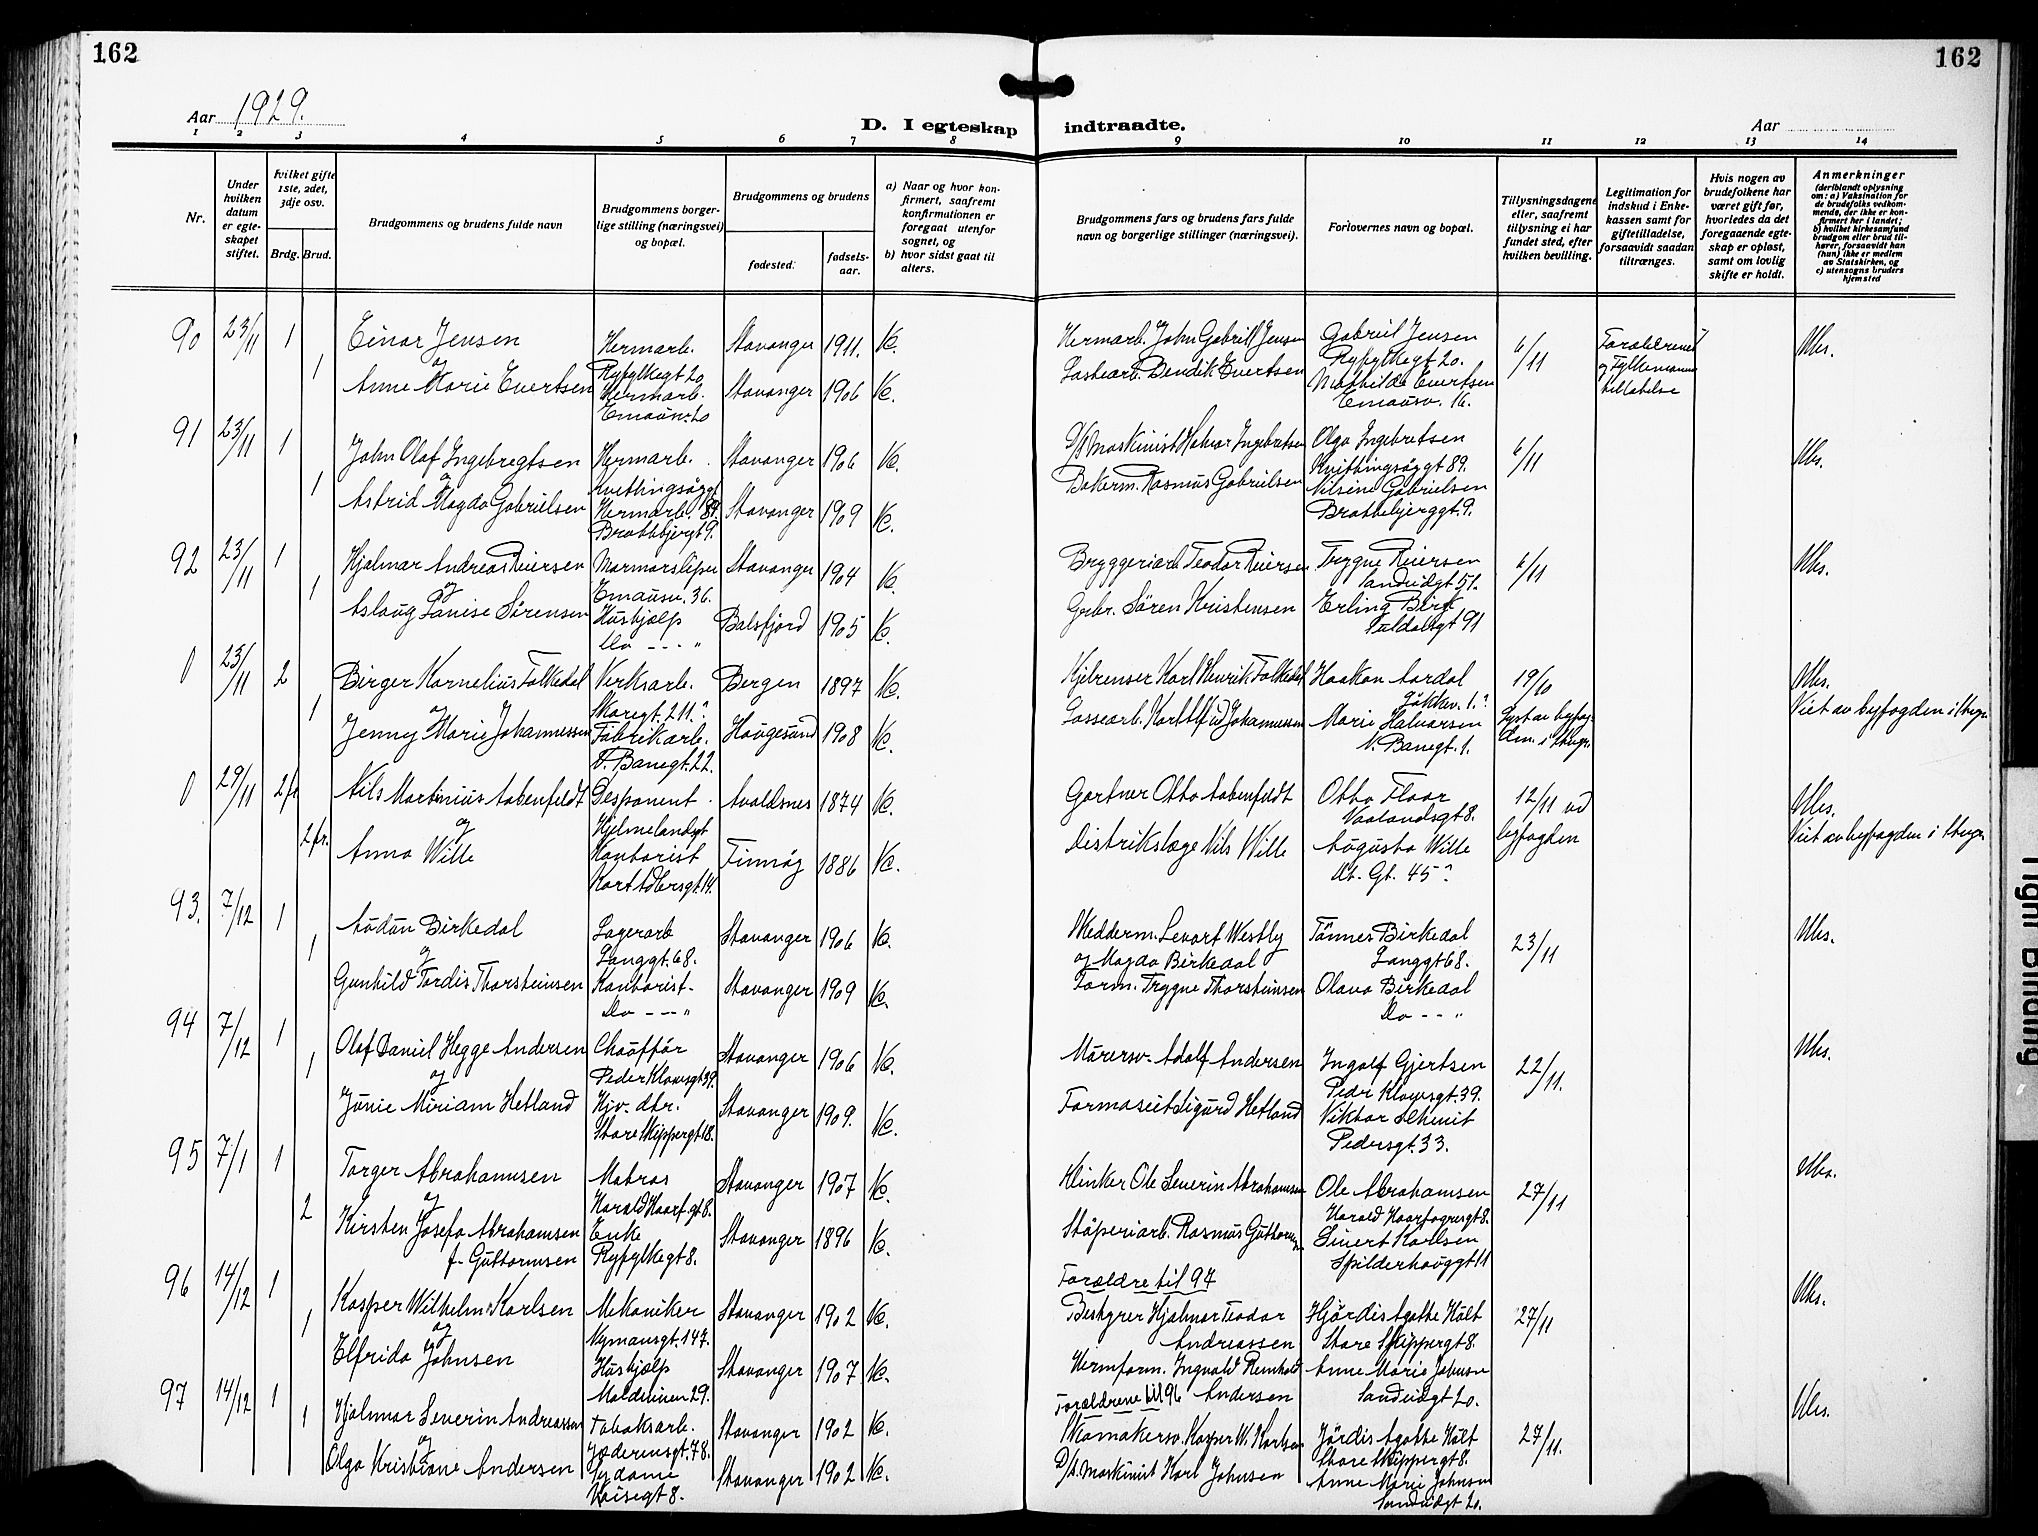 162
162
Aar 1929.
D. I egteskap indtraadte.
Aar
1 2 3 4 5 6 7 8 9 10 11 12 13 14
Nr.
Under hvilken datum er egteskapet stiftet.
hvilket gifte 1ste, 2det, 3dje osv.
Brdg. Brud.
Brudgommens og brudens fulde navn
Brudgommens borgerlige stilling (næringsvei) og bopæl.
Brudgommens og brudens
fødested.
fødselsaar.
a) Naar og hvor konfirmert, saafremt konfirmationen er foregaat utenfor sognet, og
b) hvor sidst gaat til alters.
Brudgommens fars og brudens fars fulde navn og borgerlige stillinger (næringsvei).
Forlovernes navn og bopæl.
Tillysningsdagene eller, saafremt tillysning ei har fundet sted, efter hvilken bevilling.
Legitimation for indskud i Enkekassen samt for giftetilladelse, forsaavidt saadan tiltrænges.
Hvis nogen av brudefolkene har været gift før, hvorledes da det foregaaende egteskap er opløst, samt om lovlig skifte er holdt.
Anmerkninger
(deriblandt oplysning om: a) Vaksination for de brudefolks vedkommende, der ikke er konfirmert her i landet; b) hvilket kirkesamfund brudgom eller brud tilhører, forsaavidt han (hun) ikke er medlem av Statskirken, og c) utensogns bruders hjemsted
90 23/11 1 Einar Jensen Hermarb. Stavanger 1911. K. Hermarb. John Gabriell Jensen Gabriel Jensen 6/11 Forældrenes
og Ryfylkegt 20 Ryfylkegt 20. og Fylkemannens
1 Anne Marie Evertsen Hermarb. Stavanger 1906 K. Lastearb. Bendik Evertsen Mathilde Evertsen tillatelse
Emausv. 20 Emausv. 16.
91 23/11 1 John Olaf Ingebregtsen Hermarb. Stavanger 1906 K. D/S Maskinist Halvor Ingebretsen Olga Ingebretsen 6/11
og Kvitingsøygt 89. Kvitingsøygt 89.
1 Astrid Magda Gabrielsen Hermarb. Stavanger 1909 K. Bakerm. Rasmus Gabrielsen Nilsine Gabrielsen
Brattebjergt 9. Brattebjerggt. 9.
92 23/11 1 Hjalmar Andreas Reiersen Marmorsliper Stavanger 1904 K. Bryggeriarb. Teodor Reiersen Trygve Reiersen 6/11
og Emausv. 36. Sandvigt 51.
1 Aslaug Louise Sørensen Hushjelp Balsfjord 1905 K. Grbr. Søren Kristensen Erling Birk
Do --- " Suldalsgt 91
0 23/11 2 Birger Kornelius Falkedal Verksarb. Bergen 1897 K. Kjelrenser Karl Henrik Falkedal Haakon Aardal 19/10
og Skaregt. 211.? Løkkev. 1.? Viet av byfogden i Haugs.
1 Jenny Marie Johannessen Fabrikarb. Haugesund 1908 K. Lossearb. Karl Alfred Johannessen Marie Halvorsen Lyst av byfogden i Haugs.
V. Banegt. 22. N. Banegt. 1.
0 29/11 2 fr Nils Martinius Aabenfeldt Disponent Avaldsnes 1874 K. Gartner Otto Aabenfeldt Otto Floor 12/11 ved
og Hjelmelandsgt Vaalandsgt 8. byfogden
2 fr. Anna Wille Kontorist Finnøy 1886 K. Distriktslæge Nils Wille Augusta Wille Viet av byfogden i Haugs.
Kort Adlersgt. 14. Kb. Gt. 45?
93. 7/12 1 Audun Birkedal Lagerarb Stavanger 1906 K. Meddern. Levart Westly Tønnes Birkedal 23/11
og Langgt. 68. og Magda Birkedal Langgt 68.
1 Gunhild Tordis Thorsteinsen Kontorist Stavanger 1909 K. Form. Trygve Thorsteinsen Olava Birkedal
Do --- " Do -- "
94 7/12 1 Olaf Daniel Hegge Andersen Chauffør Stavanger 1906 K. Murersv. Adolf Andersen Ingolf Gjertsen 22/11.
og Peder Klowsgt 39. Peder Klowsgt. 39.
1 Junie Miriam Hetland Hjv. dtr. Stavanger 1909. K. Farmaseut Sigurd Hetland Viktor Schmit
Store Skippergt 18. Pedersgt. 33.
95 7/1 1 Torger Abrahamsen Matros Stavanger 1907 K. Klinker Ole Severin Abrahamsen Ole Abrahamsen 27/11
og Harald Haarf.gt 8. Harald Haarfagresgt 8.
2 Kirsten Josefa Abrahamsen Enke Stavanger 1896 K. Støperiarb. Rasmus Guttormsen Sivert Karlsen
f. Guttormsen Ryfylkegt 8. Spilderhauggt 11
96 14/12 1 Forældre til 97
Kasper Wilhelm Karlsen Mekaniker Stavanger 1902 K. Bestyrer Hjalmar Teodor Andreassen Hjørdis Agathe Hult 27/11
og Nymansgt. 147. Store Skippergt 8.
1 Elfrida Johnsen Hushjelp Stavanger 1907 K. Hermform. Ingvald Reinhold Andersen Anne Marie Johnsen
Maldeveien 29. Sandvigt 20.
97 14/12 1 Forældrene til 96
Hjalmar Severin Andreassen Tobaksarb. Stavanger 1902 K. Skomakersv. Kasper W. Karlsen Hjørdis Agathe Hult 27/11.
og Jæderensgt. 78. Store Skippergt 8.
1 Olga Kristiane Andersen Sydame Stavanger 1902 K. D/S. Maskinist Karl Johnsen Anne Marie Johnsen
Kaisegt 8. Sandvigt 20.
Tight Binding